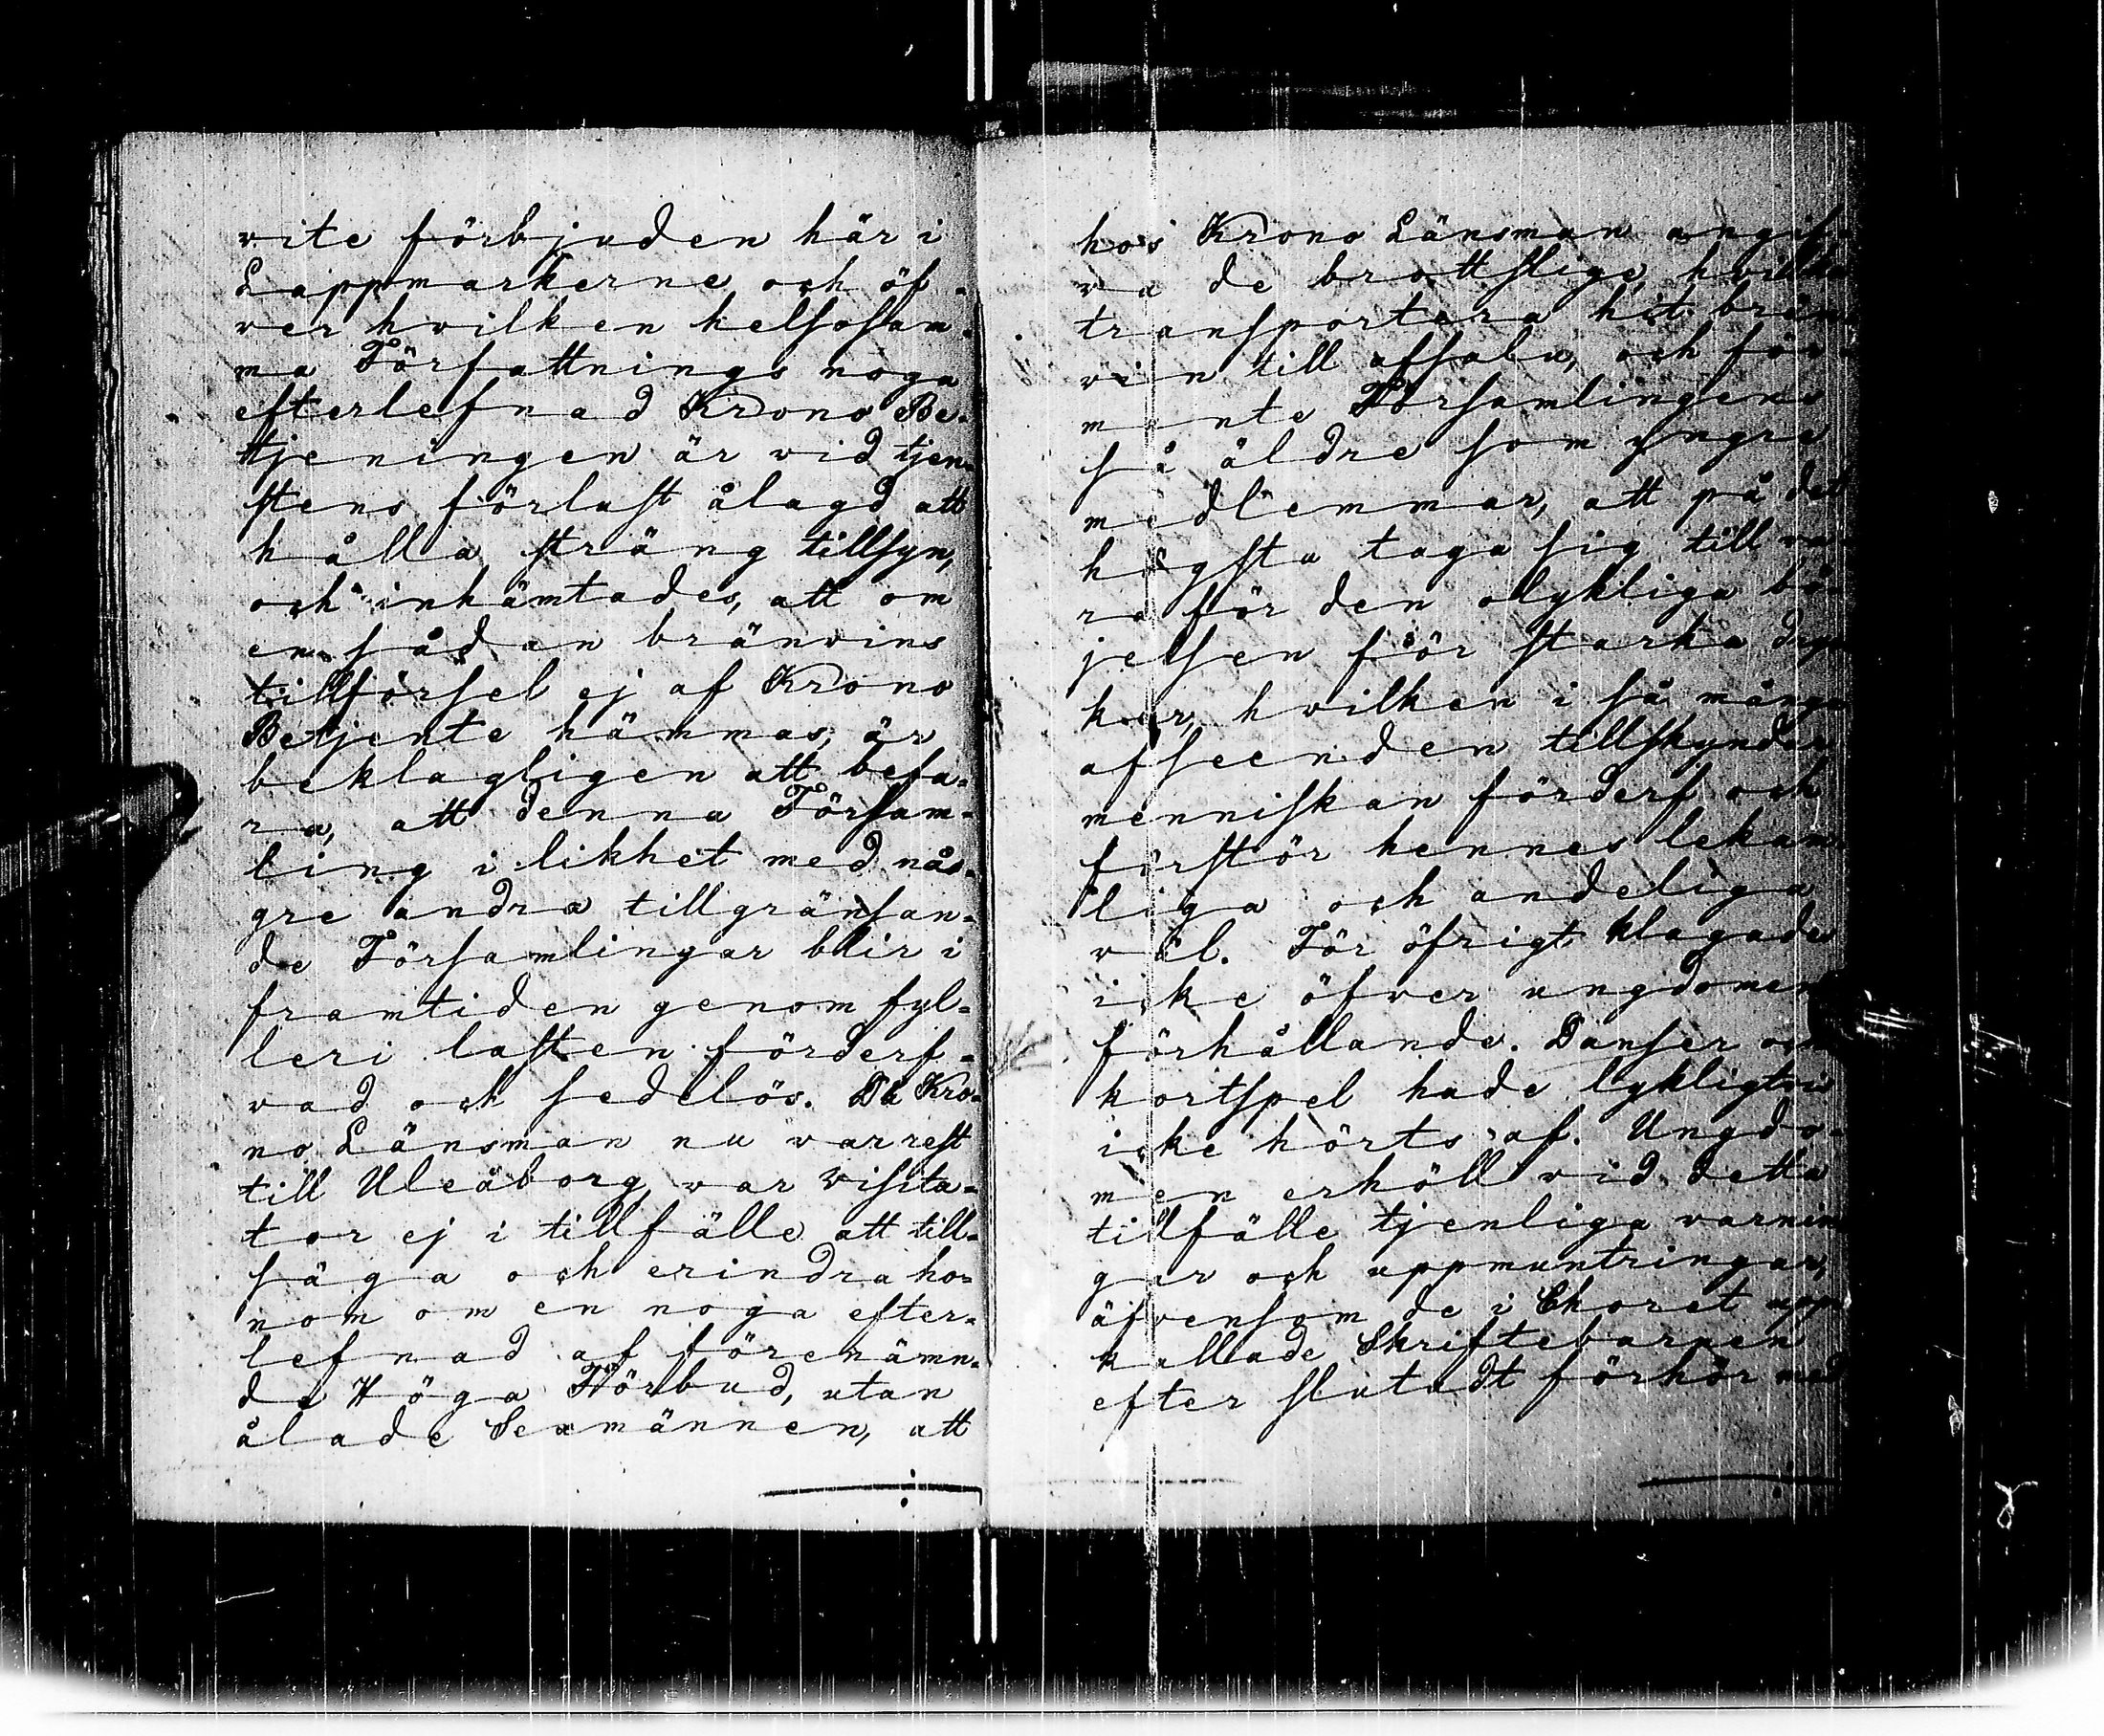 vite förbjuden här i
Lappmarkerne och öf-
ver hvilken helsosam-
ma Författnings noga
efterlefnad Krono Be-
tjeningen är vid tjen-
stens förlust ålagd att
hålla sträng tillsyn,
och inhämtades, att om
en sådan bränvins
tillförsel ej af Krono
Betjente hämmas, är
beklagligen att befa-
ra, att denna Försam-
ling i likhet med nås-
gre andra tillgränsan-
de Församlingar blir i
framtiden genom fyl-
leri lasten förderf-
vad och sedelös. Då Kro-
no Länsman nu var rest
till Uleåborg, var visita-
tor ej i tillfälle att till-
säga och erindra ho-
nom om en noga efter-
lefnad af förenämn-
da Höga Förbud, utan
ålade Sexmännen, att
hos Krono Länsman angif-
va de brottslige, hvilka
transportera hit brän-
vin till afsalu, och för-
mante Församlingens
så äldre som yngre
medlemmar, att på det
högsta taga sig till va-
ra för den olykliga bö-
jelsen för starka dryc-
kor, hvilken i så många
afseenden tillskyndar
menniskan förderf och
förstör hennes lekam-
liga och andeliga
väl. För öfrigt klagades
icke öfver ungdomens
förhållande. Danser och
kortspel hade lykligtvis
icke hörts af. Ungdo-
men erhöll vid detta
tillfälle tjenliga varnin-
gar och uppmuntringar,
äfvensom de i Choret upp-
kallade Skriftebarnen
efter slutadt förhör med